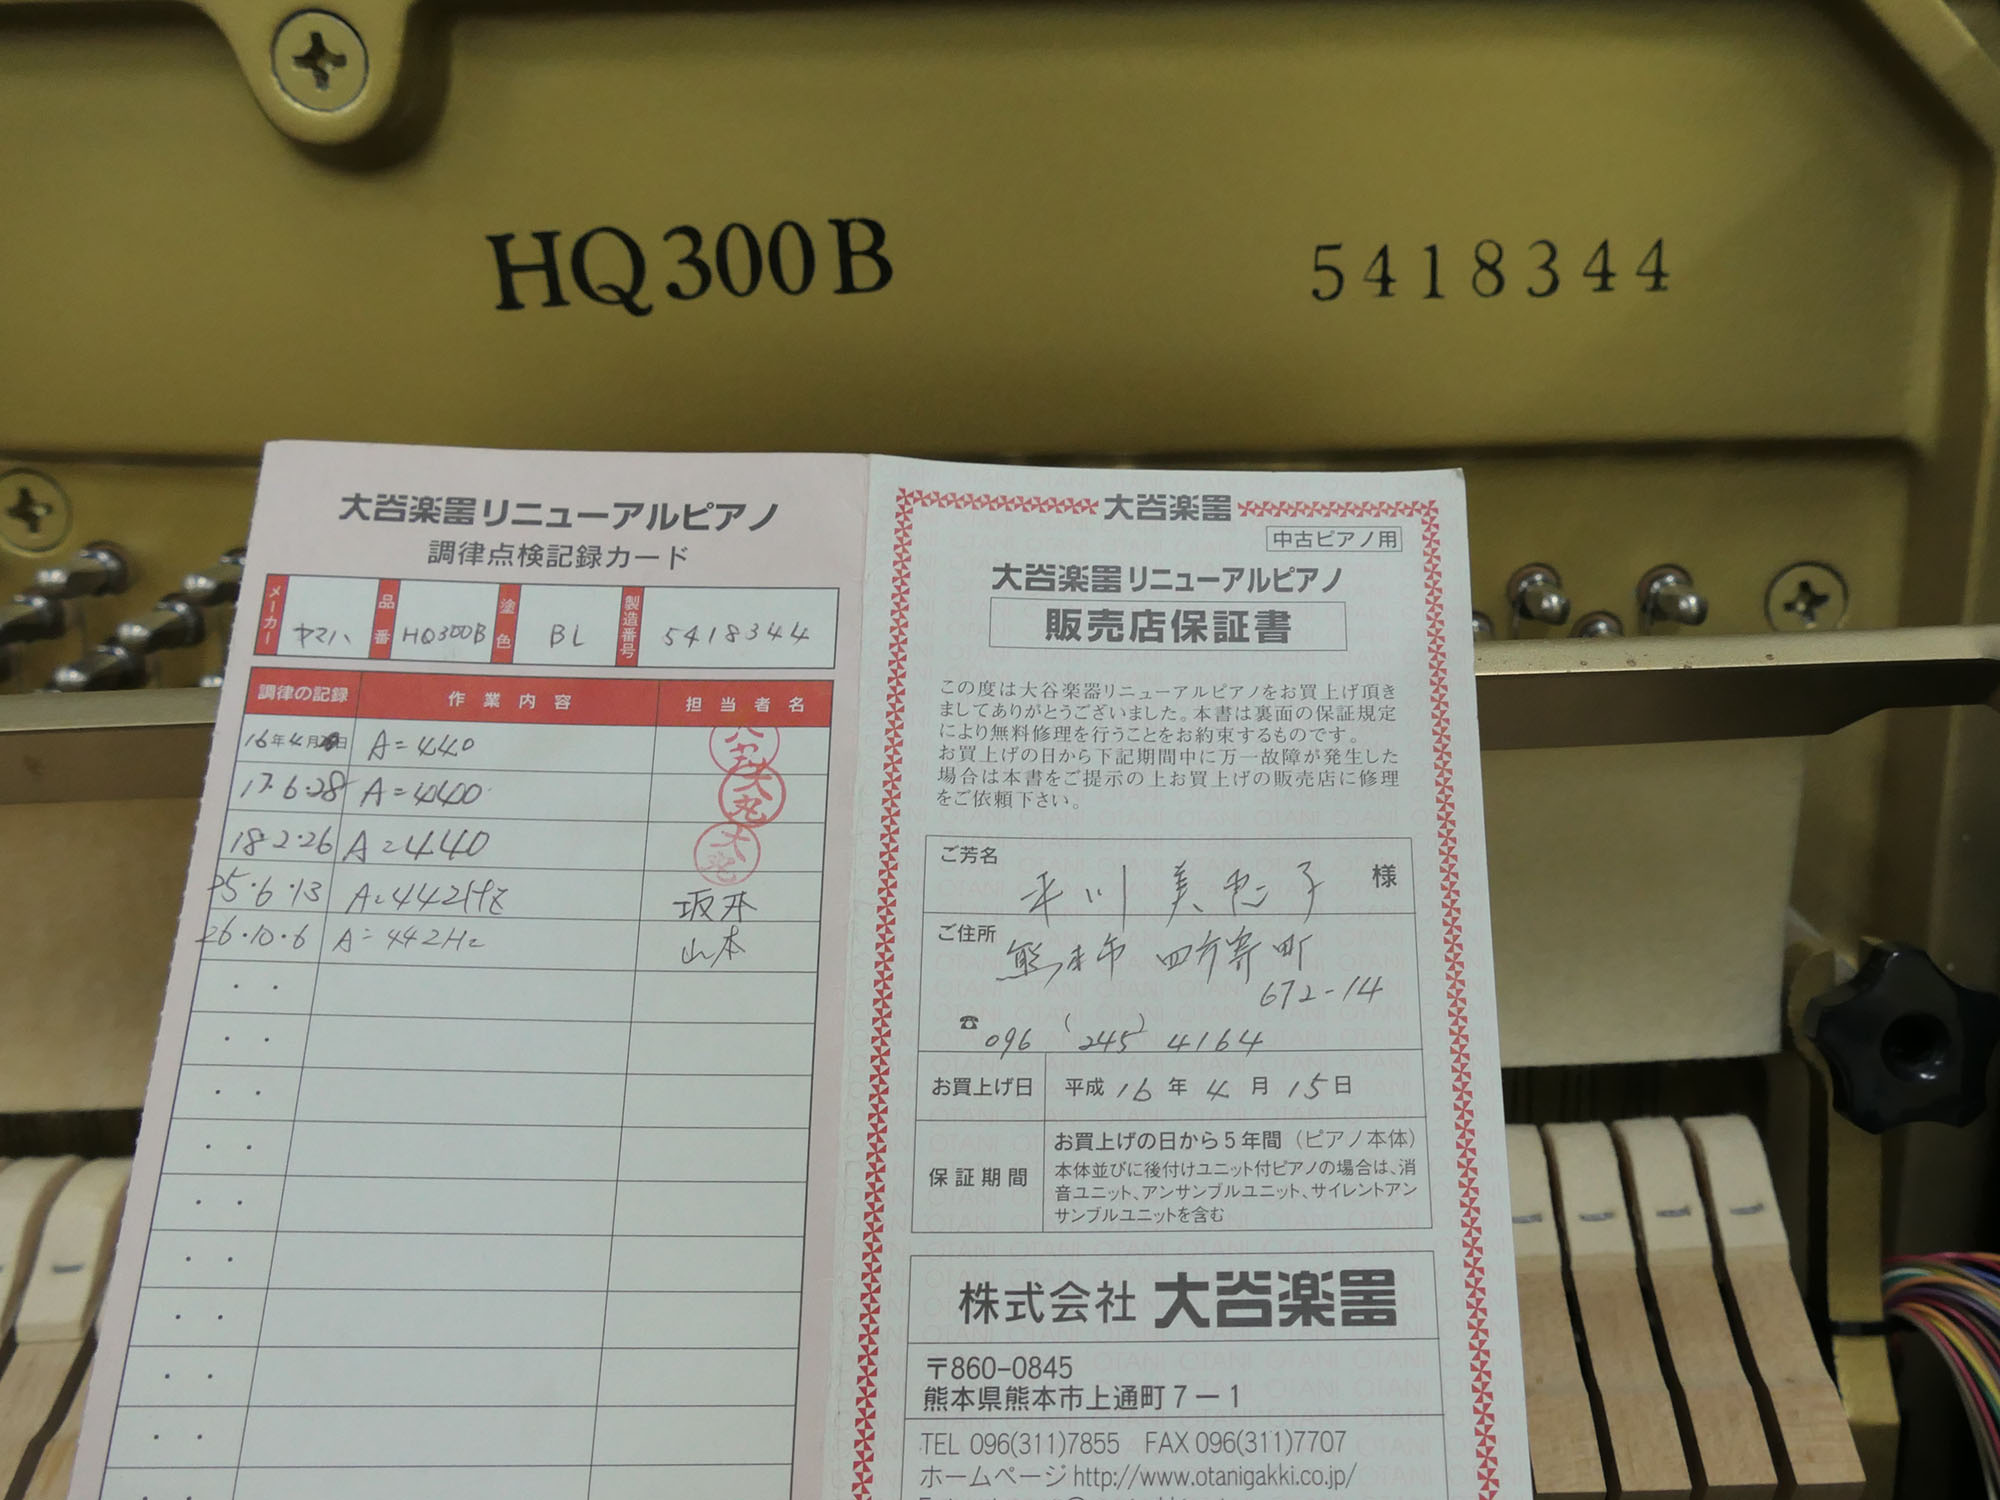 HQ300B
5418344
大谷楽器リニューアルピアノ
調律点検記録カード
メーカー ヤマハ 品番 HQ300B 塗色 BL 製造番号 5418344
調律の記録 作業内容 担当者名
16年4月 日 A=440
17・6・28 A=440
18・2・26 A=440
25・6・13 A=442Hz 坂本
26・10・6 A=442Hz 山本
大谷楽器
中古ピアノ用
大谷楽器リニューアルピアノ
販売店保証書
この度は大谷楽器リニューアルピアノをお買上げ頂き
ましてありがとうございました。本書は裏面の保証規定
により無料修理を行うことをお約束するものです。
お買上げの日から下記期間中に万一故障が発生した
場合は本書をご提示の上お買上げの販売店に修理
をご依頼下さい。
ご芳名 平川 美恵子 様
ご住所 熊本市 四方寄町
672-14
☎ 096 (245) 4164
お買上げ日 平成16年4月15日
保証期間 お買上げの日から5年間(ピアノ本体)
本体並びに後付けユニット付ピアノの場合は、消
音ユニット、アンサンブルユニット、サイレントアン
サンブルユニットを含む
株式会社 大谷楽器
〒860-0845
熊本県熊本市上通町7-1
TEL 096(311)7855 FAX 096(311)7707
ホームページ http://www.otanigakki.co.jp/